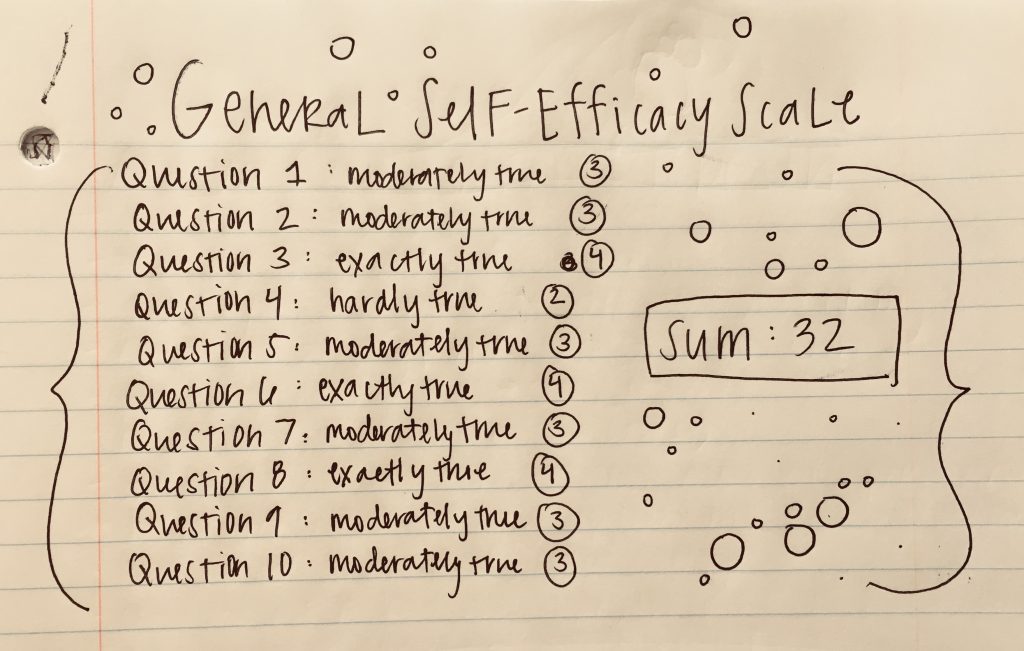 General Self-Efficacy Scale
Question 1 : moderately true 3
Question 2 : moderately true 3
Question 3 : exactly true 4
Question 4 : hardly true 2
Question 5 : moderately true 3
Question 6 : exactly true 4
Question 7 : moderately true 3
Question 8 : exactly true 4
Question 9 : moderately true 3
Question 10 : moderately true 3
Sum : 32